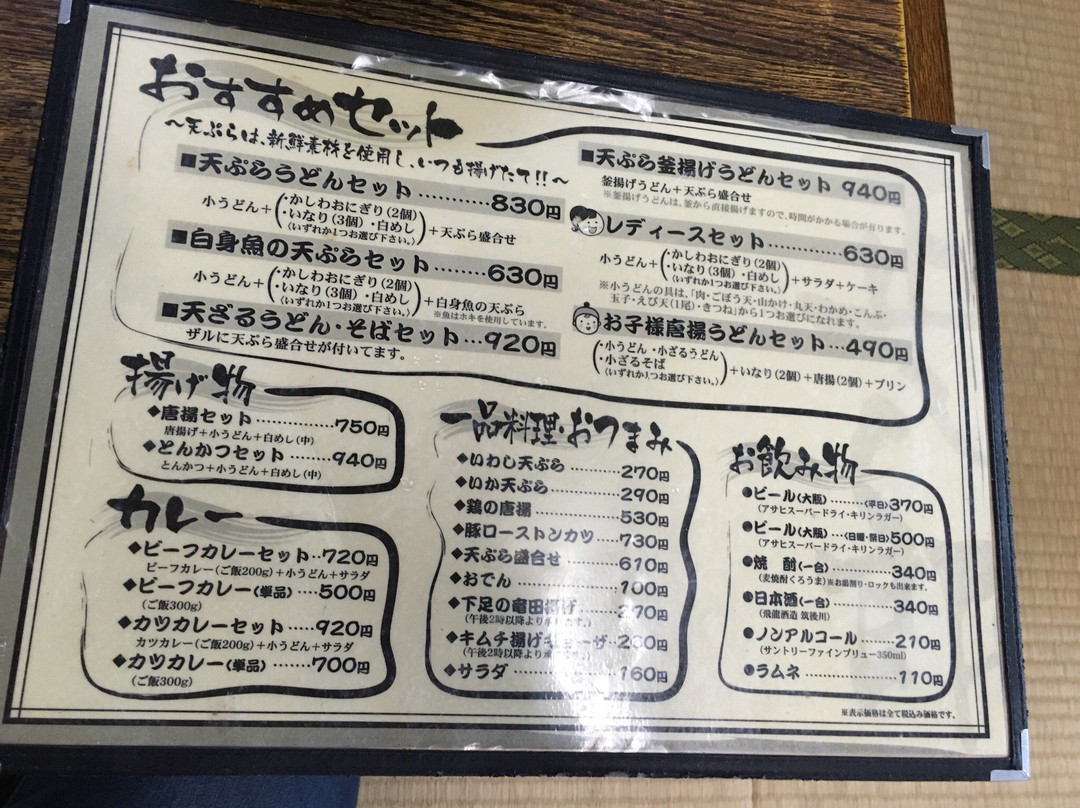 おすすめセット
～天ぷらは、新鮮素材を使用し、いつも揚げたて!!～
■天ぷらうどんセット………830円
小うどん+(・かしわおにぎり(2個)
・いなり(3個) ・白めし
(いずれか1つお選び下さい。))+天ぷら盛合せ
■白身魚の天ぷらセット………630円
小うどん+(・かしわおにぎり(2個)
・いなり(3個) ・白めし
(いずれか1つお選び下さい。))+白身魚の天ぷら
※魚はホキを使用しています。
■天ざるうどん・そばセット…920円
ザルに天ぷら盛合せが付いてます。
■天ぷら釜揚げうどんセット 940円
釜揚げうどん+天ぷら盛合せ
※釜揚げうどんは、釜から直接揚げますので、時間がかかる場合が有ります。
レディースセット………630円
小うどん+(・かしわおにぎり(2個)
・いなり(3個) ・白めし
(いずれか1つお選び下さい。))+サラダ+ケーキ
※小うどんの具は、「肉・ごぼう天・山かけ・丸天・わかめ・こんぶ・
玉子・えび天(1尾)・きつね」から1つお選びになれます。
お子様唐揚うどんセット…490円
(・小うどん ・小ざるうどん
・小ざるそば
(いずれか1つお選び下さい。))+いなり(2個)+唐揚(2個)+プリン
揚げ物
◆唐揚セット………750円
唐揚げ+小うどん+白めし(中)
◆とんかつセット………940円
とんかつ+小うどん+白めし(中)
カレー
◆ビーフカレーセット…720円
ビーフカレー(ご飯200g)+小うどん+サラダ
◆ビーフカレー(単品)……500円
(ご飯300g)
◆カツカレーセット………920円
カツカレー(ご飯200g)+小うどん+サラダ
◆カツカレー(単品)………700円
(ご飯300g)
一品料理・おつまみ
◆いわし天ぷら………270円
◆いか天ぷら………290円
◆鶏の唐揚………530円
◆豚ローストンカツ………730円
◆天ぷら盛合せ………610円
◆おでん………100円
◆下足の竜田揚げ……370円
(午後2時以降より承ります。)
◆キムチ揚げギョーザ…260円
(午後2時以降より承ります。)
◆サラダ………160円
お飲み物
●ビール(大瓶)………(平日)370円
(アサヒスーパードライ・キリンラガー)
●ビール(大瓶)…(日曜・祭日)500円
(アサヒスーパードライ・キリンラガー)
●焼 酎(一合)………340円
(麦焼酎くろうま)※お湯割り・ロックも出来ます。
●日本酒(一合)………340円
(飛龍酒造 筑後川)
●ノンアルコール………210円
(サントリーファインブリュー350ml)
●ラムネ………110円
※表示価格は全て税込み価格です。